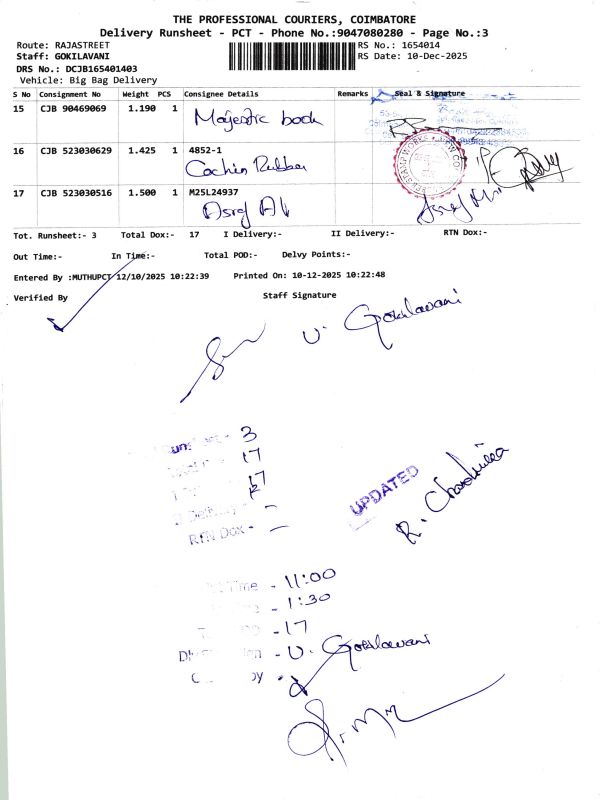 THE PROFESSIONAL COURIERS, COIMBATORE
Delivery Runsheet - PCT - Phone No.:9047080280 - Page No.:3
Route: RAJASTREET
RS No.: 1654014
Staff: GOKILAVANI
RS Date: 10-Dec-2025
DRS No.: DCJB165401403
Vehicle: Big Bag Delivery
S No Consignment No Weight PCS Consignee Details Remarks Seal & Signature
15 CJB 90469069 1.190 1
Majestic book
16 CJB 523030629 1.425 1 4852-1
Cochin Rubber
17 CJB 523030516 1.500 1 M25L24937
Asraf Ali
Tot. Runsheet:- 3 Total Dox:- 17 I Delivery:- II Delivery:- RTN Dox:-
Out Time:- In Time:- Total POD:- Delvy Points:-
Entered By :MUTHUPCT 12/10/2025 10:22:39 Printed On: 10-12-2025 10:22:48
Verified By Staff Signature
V. Gokilavani
- 3
17
17
UPDATED
RTN Dox -
Time - 11:00
- 1:30
- 17
- V. Gokilavani